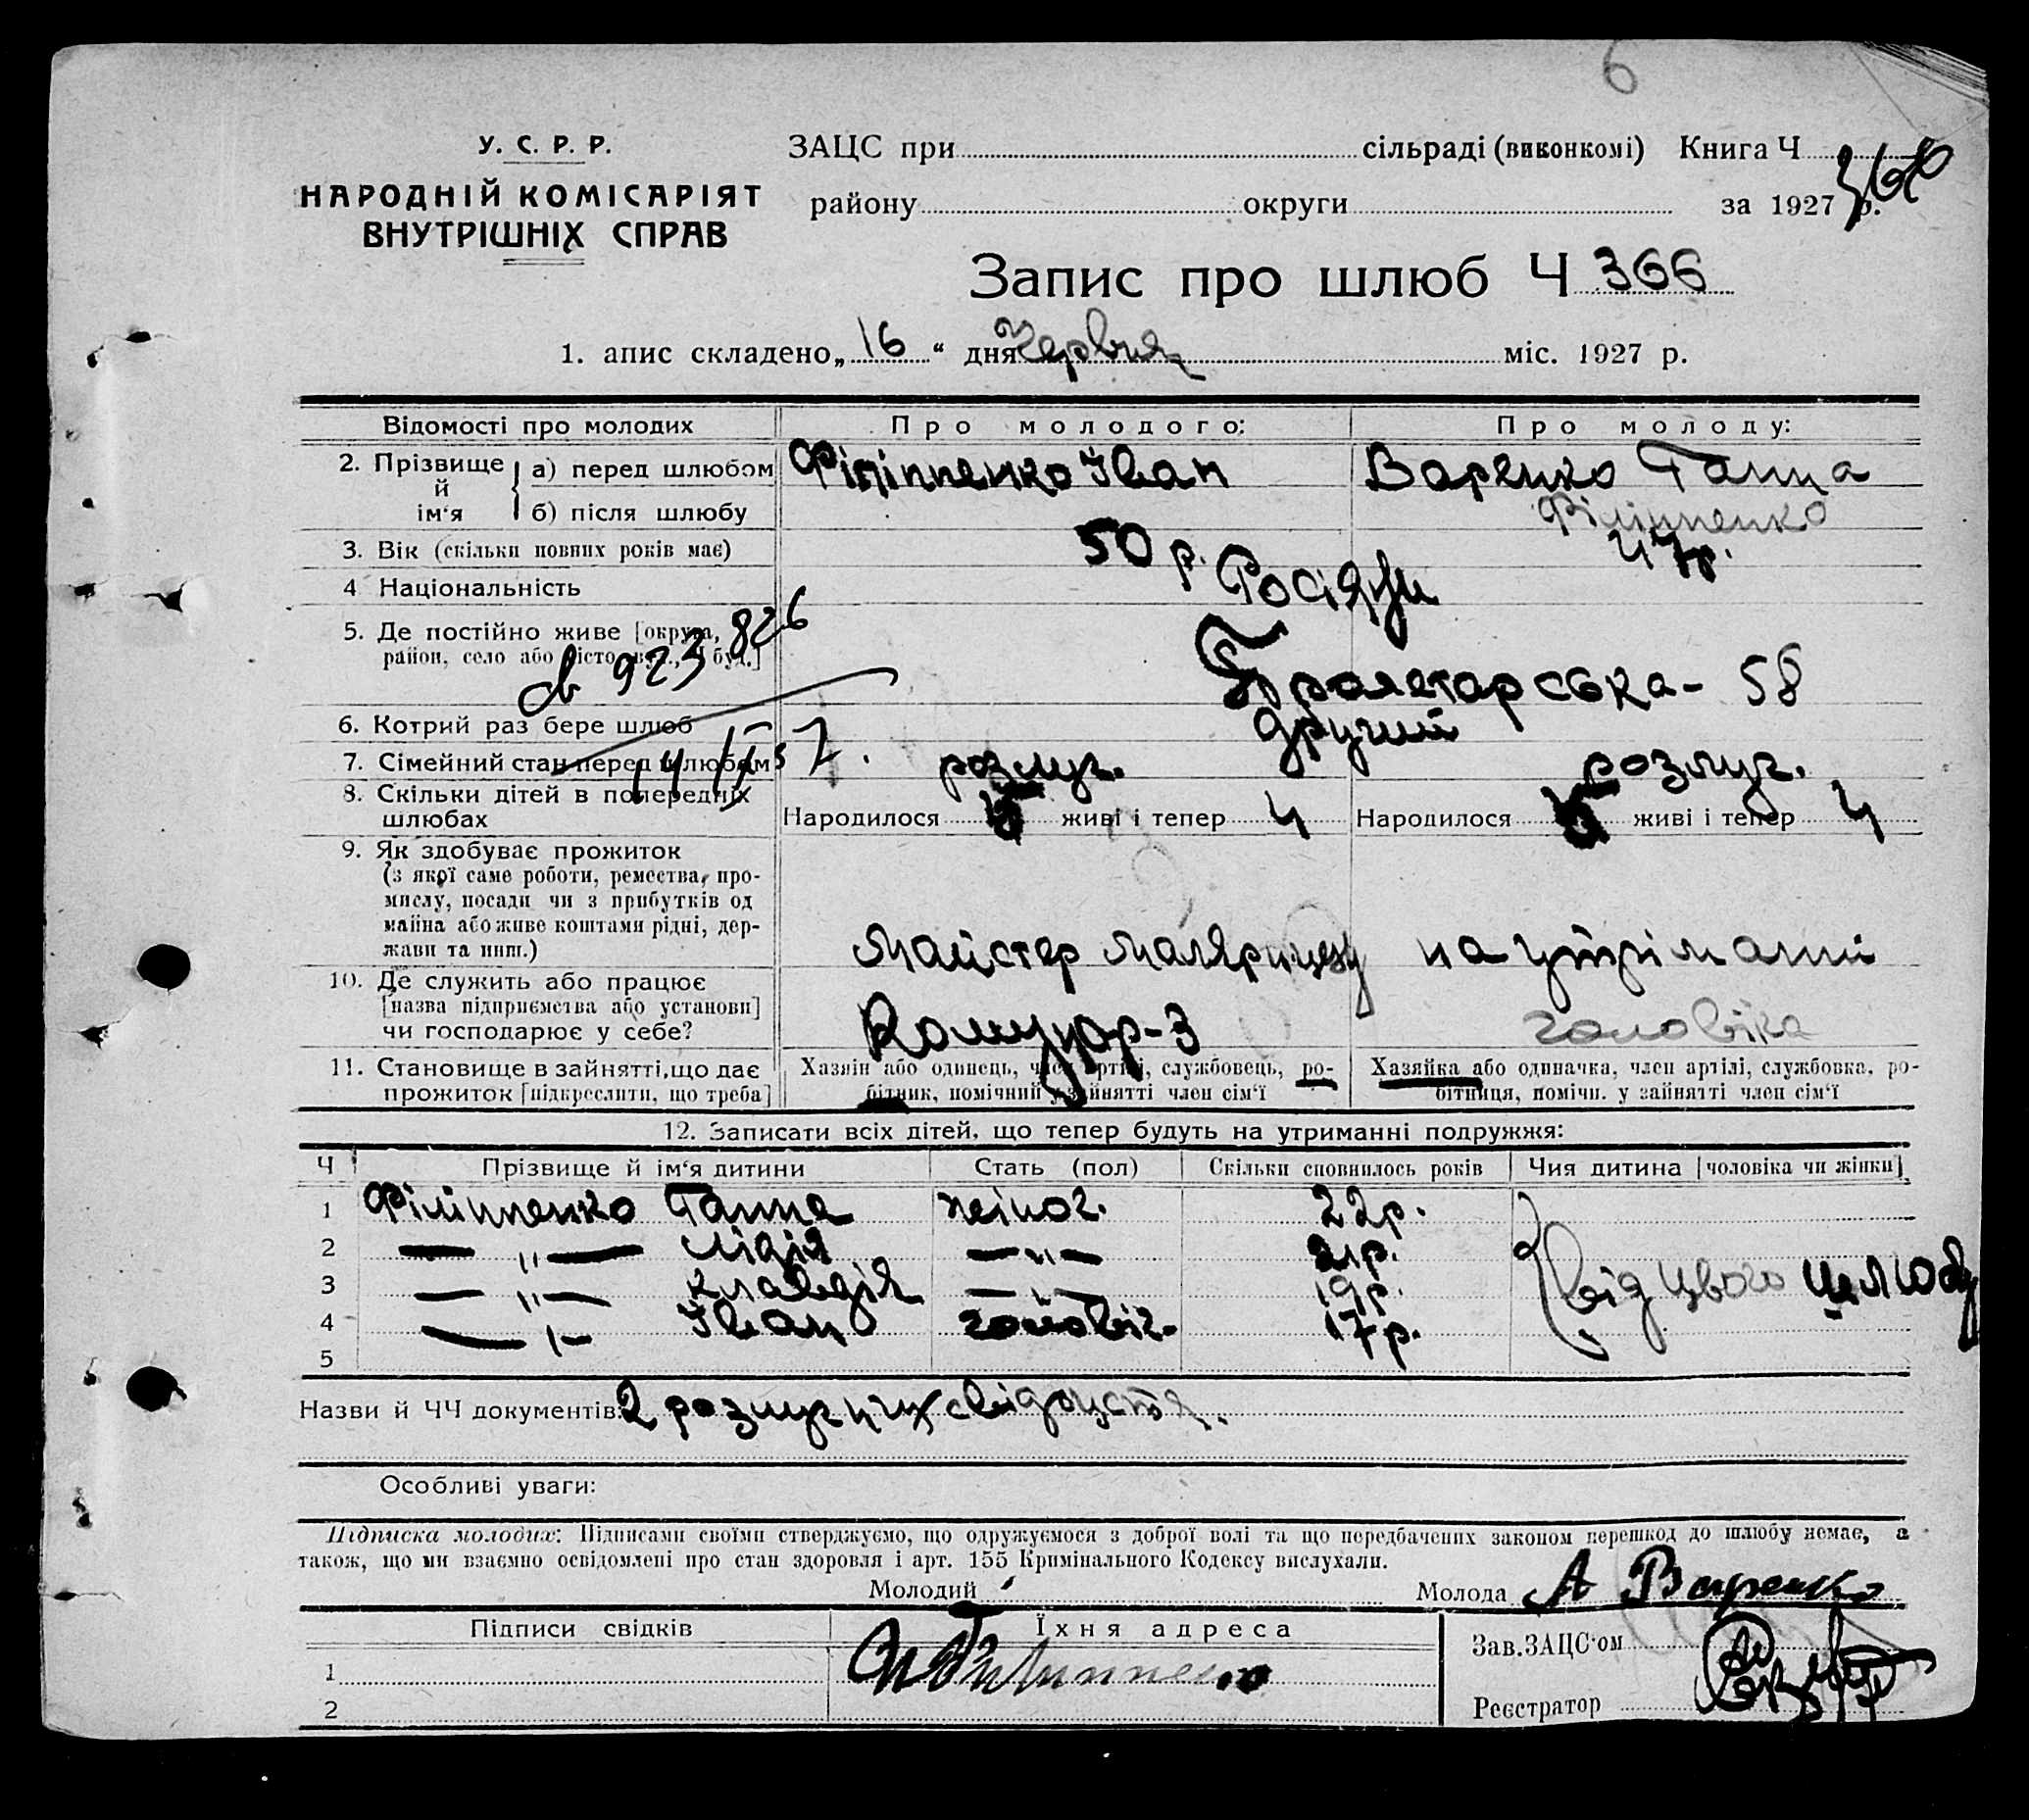 6
У. С. Р. Р.
НАРОДНІЙ КОМІСАРІЯТ
ВНУТРІШНІХ СПРАВ
ЗАЦС при сільраді (виконкомі) Книга Ч
району округи за 1927 р.
366
Запис про шлюб Ч 366
1. апис складено „ 16 “ дня Червня міс. 1927 р.
Відомості про молодих Про молодого: Про молоду:
2. Прізвище й ім‘я а) перед шлюбом Філіппенко Іван Варенко Ганна
б) після шлюбу Філіппенко
3. Вік (скільки повних років має) 50 р. 47р.
4 Національність Росіяни
5. Де постійно живе [округа, район, село або місто, вул., Ч буд.] Пролетарська - 58
923 826
6. Котрий раз бере шлюб другий
7. Сімейний стан перед шлюбом розлуч. розлуч.
8. Скільки дітей в попередніх шлюбах Народилося 5 живі і тепер 4 Народилося 5 живі і тепер 4
9. Як здобуває прожиток
(з якої саме роботи, ремества, про-
мислу, посади чи з прибутків од
майна або живе коштами рідні, дер-
жави та инш.) Майстер малярн. цеху на утріманні
10. Де служить або працює
[назва підприємства або установи]
чи господарює у себе? Комунар-3 чоловіка
11. Становище в зайнятті, що дає
прожиток [підкреслити, що треба]
Хазяїн або одинець, член артілі, службовець, ро-
бітник, помічний у зайнятті член сім‘ї
Хазяйка або одиначка, член артілі, службовка, ро-
бітниця, помічн. у зайнятті член сім‘ї
12. Записати всіх дітей, що тепер будуть на утриманні подружжя:
Ч Прізвище й ім‘я дитини Стать (пол) Скільки сповнилось років Чия дитина [чоловіка чи жінки]
1 Філіппенко Ганна жіноч. 22р.
2 — „ — Лідія — „ — 21р.
3 — „ — Клавдія — „ — 19р. від цього шлюбу
4 — „ — Іван чоловіч. 17р.
5
Назви й ЧЧ документів: 2 розлучних свідоцтв.
Особливі уваги:
Підписка молодих: Підписами своїми стверджуємо, що одружуємося з доброї волі та що передбачених законом перешкод до шлюбу немає, а
також, що ми взаємно освідомлені про стан здоровля і арт. 155 Кримінального Кодексу вислухали.
Молодий Молода А Варенко
Підписи свідків Їхня адреса Зав. ЗАЦС‘ом
1 И Филиппенко
2 Реєстратор